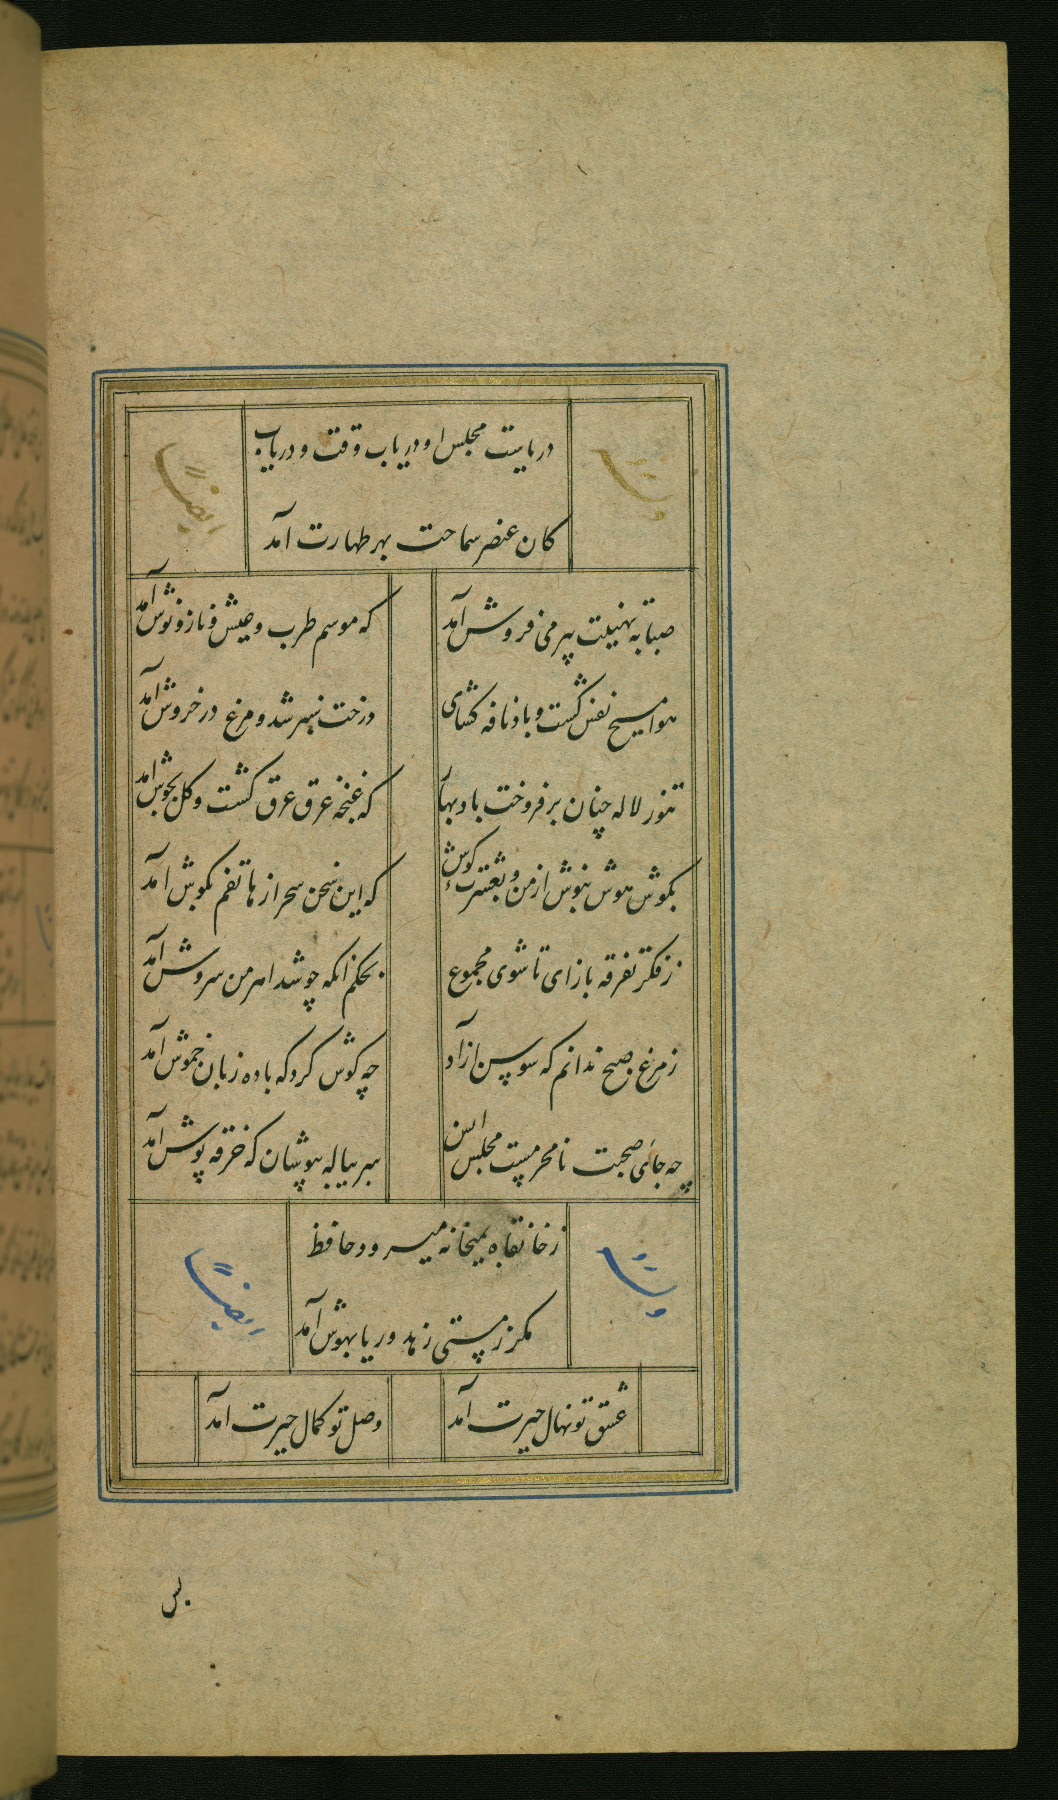 دریاست مجلس او دریاب وقت و دریاب
کان عنصر سماحت بهر طهارت آمد
وله
ایضا
صبا به تهنیت پیر می فروش آمد
که موسم طرب و عیش و ناز و نوش آمد
هوا مسیح نفس گشت و باد نافه گشای
درخت سبز شد و مرغ در خروش آمد
تنور لاله چنان بر فروخت باد بهار
که غنچه غرق عرق گشت و گل بجوش آمد
بگوش هوش نیوش از من و بعشرت کوش
که این سخن سحر از هاتفم بگوش آمد
ز فکر تفرقه باز ای تا شوی مجموع
بحکم انکه چو شد اهرمن سروش آمد
ز مرغ صبح ندانم که سوسن ازاد
چه گوش کرد که باده زبان خموش آمد
چه جائ صحبت نامحرمست مجلس انس
سر پیاله بپوشان که خرقه پوش آمد
ز خانقاه بمیخانه میرود حافظ
مگر ز مستی زهد و ریا بهوش آمد
ایضا
عشق تو نهال حیرت آمد
وصل تو کمال حیرت آمد
بس